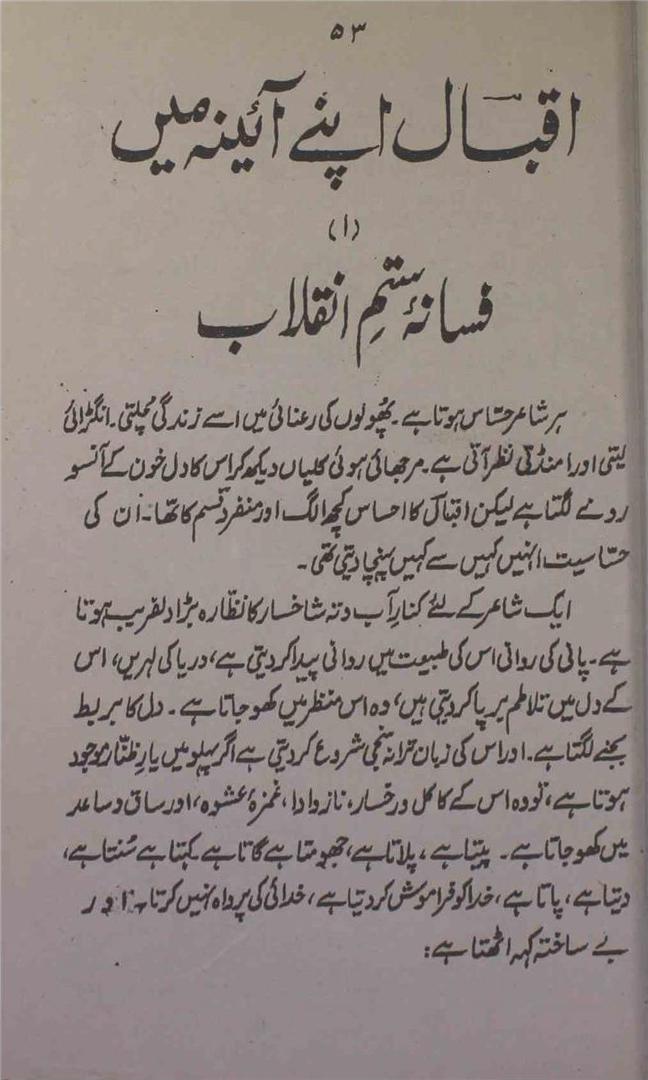 ۵۳
اقبال اپنے آئینہ میں
(۱)
فسانۂ ستمِ انقلاب
ہر شاعر حسّاس ہوتا ہے۔ پھُولوں کی رعنائی میں اسے زندگی مچلتی۔ انگڑائی
لیتی اور امنڈتی نظر آتی ہے۔ مرجھائی ہوئی کلیاں دیکھ کر اس کا دل خون کے آنسو
رونے لگتا ہے لیکن اقبال کا احساس کچھ الگ اور منفرد قسم کا تھا۔ ان کی
حسّاسیت انہیں کہیں سے کہیں پہنچا دیتی تھی۔
ایک شاعر کے لئے کنارِ آب و تہ شاخسار کا نظّارہ بڑا دلفریب ہوتا
ہے۔ پانی کی روانی اس کی طبیعت میں روانی پیدا کر دیتی ہے، دریا کی لہریں، اس
کے دل میں تلاطم برپا کر دیتی ہیں، وہ اس منظر میں کھو جاتا ہے۔ دل کا بربط
بجنے لگتا ہے۔ اور اس کی زبان ترانہ سنجی شروع کر دیتی ہے اگر پہلو میں یارِ طنّار موجود
ہوتا ہے، تو وہ اس کے کاکل و رخسار، ناز و ادا، غمزہ عشوہ، اور ساق و ساعد
میں کھو جاتا ہے۔ پیتا ہے، پلاتا ہے، جھومتا ہے گاتا ہے کہتا ہے سُنتا ہے،
دیتا ہے، پاتا ہے، خدا کو فراموش کر دیتا ہے، خدائی کی پرواہ نہیں کرتا۔ اور
بے ساختہ کہہ اٹھتا ہے: